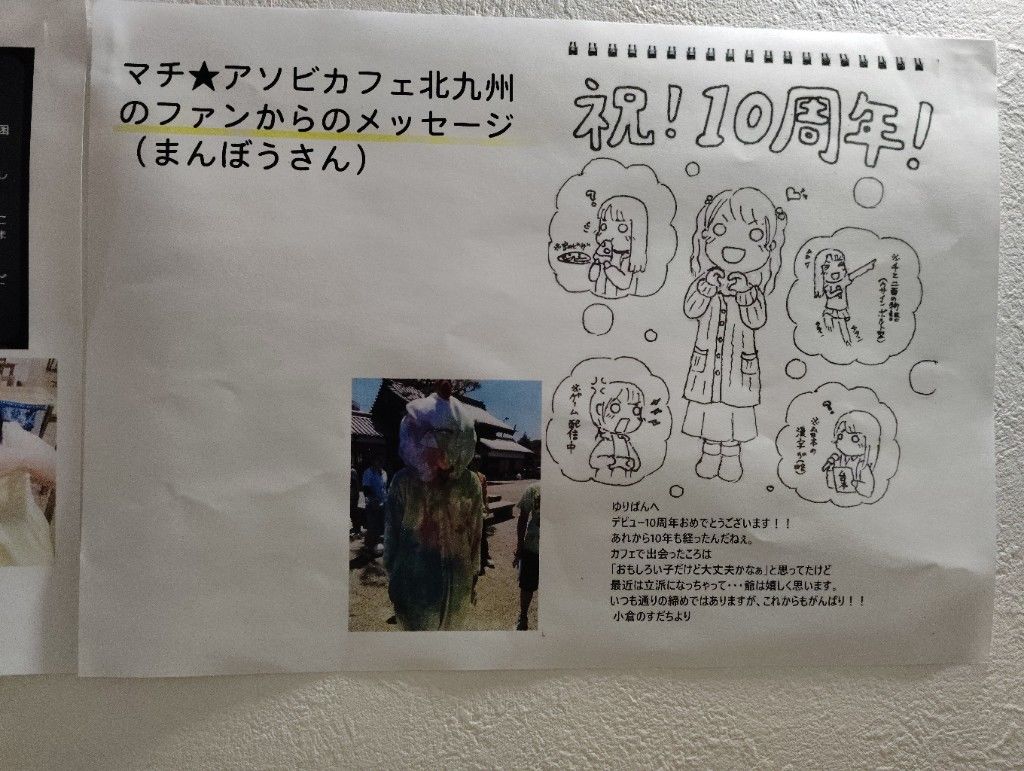 マチ★アソビカフェ北九州
のファンからのメッセージ
（まんぼうさん）
祝！10周年！
※ゲーム配信中
ゆりぱんへ
デビュー10周年おめでとうございます！！
あれから10年も経ったんだねぇ。
カフェで出会ったころは
「おもしろい子だけど大丈夫かなぁ」と思ってたけど
最近は立派になっちゃって・・・爺は嬉しく思います。
いつも通りの締めではありますが、これからもがんばり！！
小倉のすだちより